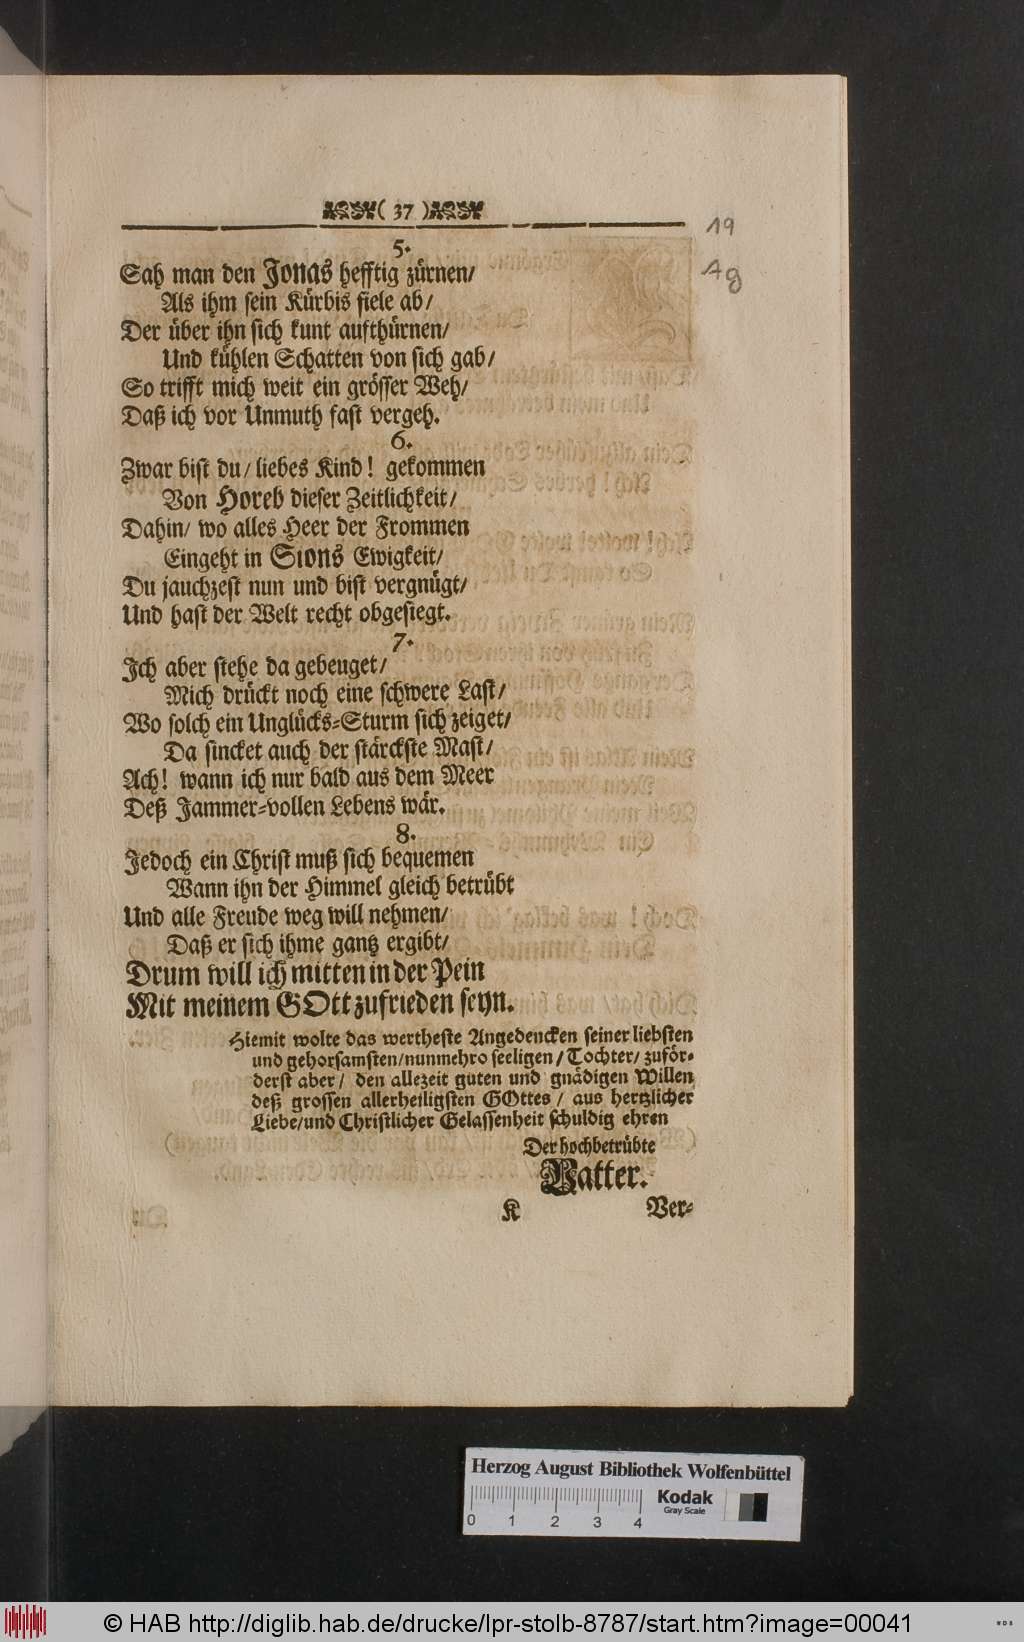 ( 37 )
19
19
5.
Sah man den Jonas hefftig zürnen/
Als ihm sein Kürbis fiele ab/
Der über ihn sich kunt aufthürnen/
Und kühlen Schatten von sich gab/
So trifft mich weit ein grösser Weh/
Daß ich vor Unmuth fast vergeh.
6.
Zwar bist du/ liebes Kind! gekommen
Von Horeb dieser Zeitlichkeit/
Dahin/ wo alles Heer der Frommen
Eingeht in Sions Ewigkeit/
Du jauchzest nun und bist vergnügt/
Und hast der Welt recht obgesiegt.
7.
Ich aber stehe da gebeuget/
Mich drückt noch eine schwere Last/
Wo solch ein Unglücks-Sturm sich zeiget/
Da sincket auch der stärckste Mast/
Ach! wann ich nur bald aus dem Meer
Deß Jammer-vollen Lebens wär.
8.
Jedoch ein Christ muß sich bequemen
Wann ihn der Himmel gleich betrübt
Und alle Freude weg will nehmen/
Daß er sich ihme gantz ergibt/
Drum will ich mitten in der Pein
Mit meinem GOtt zufrieden seyn.
Hiemit wolte das wertheste Angedencken seiner liebsten
und gehorsamsten/nunmehro seeligen/ Tochter/ zuför-
derst aber/ den allezeit guten und gnädigen Willen
deß grossen allerheiligsten GOttes/ aus hertzlicher
Liebe/und Christlicher Gelassenheit schuldig ehren
Der hochbetrübte
Vatter.
K Ver-
Herzog August Bibliothek Wolfenbüttel
0 1 2 3 4
Kodak
Gray Scale
© HAB http://diglib.hab.de/drucke/lpr-stolb-8787/start.htm?image=00041